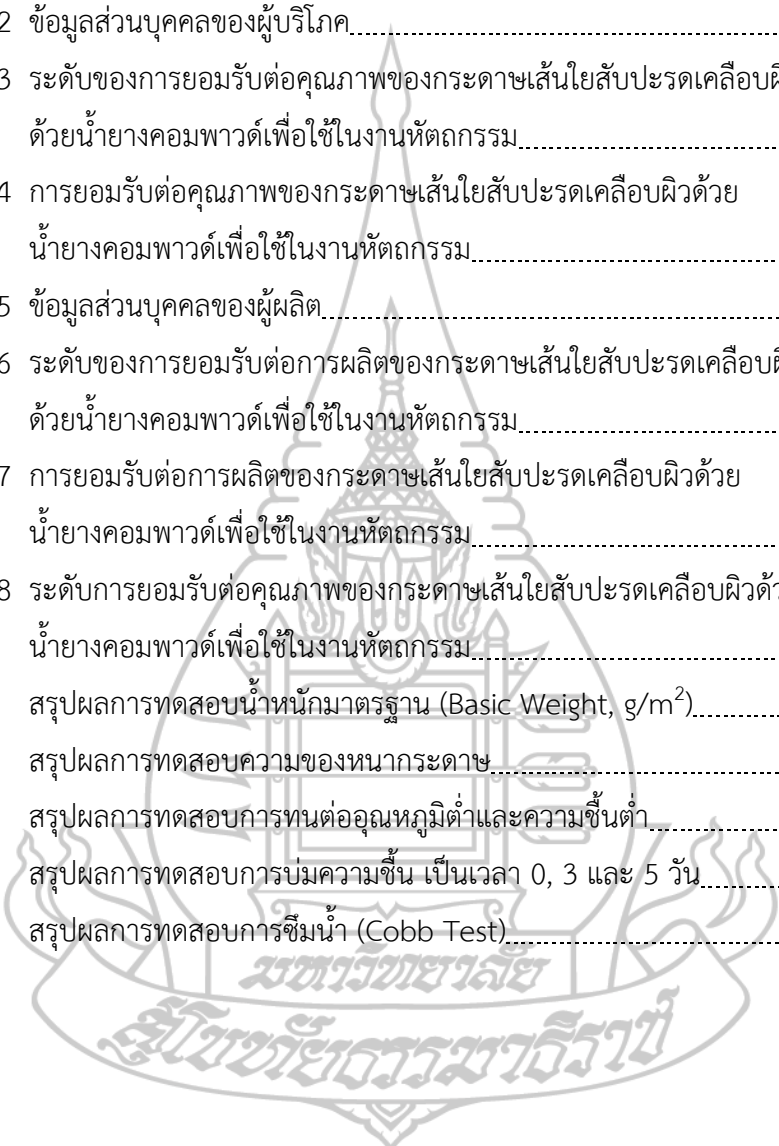 2 ข้อมูลส่วนบุคคลของผู้บริโภค
3 ระดับของการยอมรับต่อคุณภาพของกระดาษเส้นใยสับปะรดเคลือบผิ
ด้วยน้ำยางคอมพาวด์เพื่อใช้ในงานหัตถกรรม
4 การยอมรับต่อคุณภาพของกระดาษเส้นใยสับปะรดเคลือบผิวด้วย
น้ำยางคอมพาวด์เพื่อใช้ในงานหัตถกรรม
5 ข้อมูลส่วนบุคคลของผู้ผลิต
6 ระดับของการยอมรับต่อการผลิตของกระดาษเส้นใยสับปะรดเคลือบผิ
ด้วยน้ำยางคอมพาวด์เพื่อใช้ในงานหัตถกรรม
7 การยอมรับต่อการผลิตของกระดาษเส้นใยสับปะรดเคลือบผิวด้วย
น้ำยางคอมพาวด์เพื่อใช้ในงานหัตถกรรม
8 ระดับการยอมรับต่อคุณภาพของกระดาษเส้นใยสับปะรดเคลือบผิวด้ว
น้ำยางคอมพาวด์เพื่อใช้ในงานหัตถกรรม
สรุปผลการทดสอบน้ำหนักมาตรฐาน (Basic Weight, g/m²)
สรุปผลการทดสอบความของหนากระดาษ
สรุปผลการทดสอบการทนต่ออุณหภูมิต่ำและความชื้นต่ำ
สรุปผลการทดสอบการบ่มความชื้น เป็นเวลา 0, 3 และ 5 วัน
สรุปผลการทดสอบการซึมน้ำ (Cobb Test)
มหาวิทยาลัย
สุโขทัยธรรมาธิราช